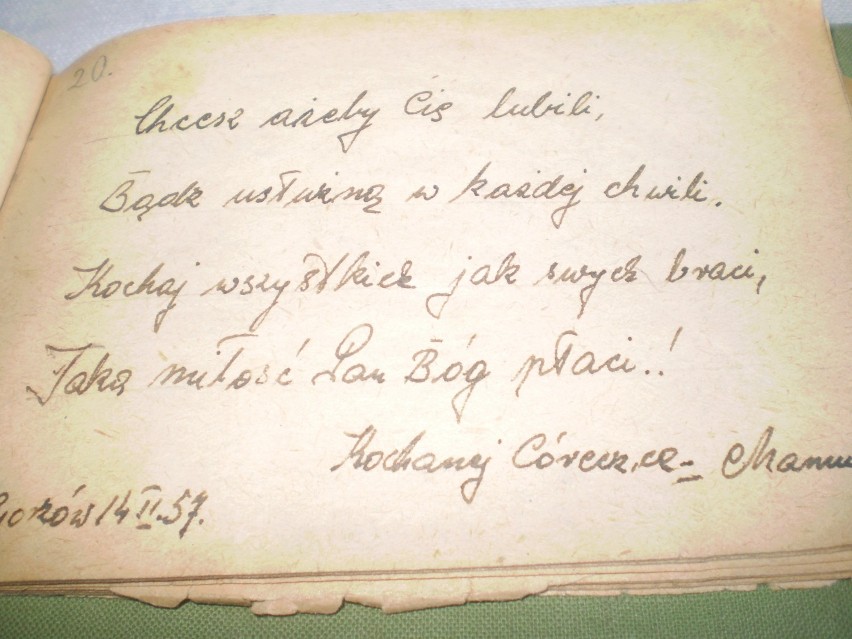 20.
Chcesz ażeby Cię lubili,
Bądź usłużną w każdej chwili.
Kochaj wszystkich jak swych braci,
Taką miłość Pan Bóg płaci..!
Kochanej Córeczce –
14 II.57.